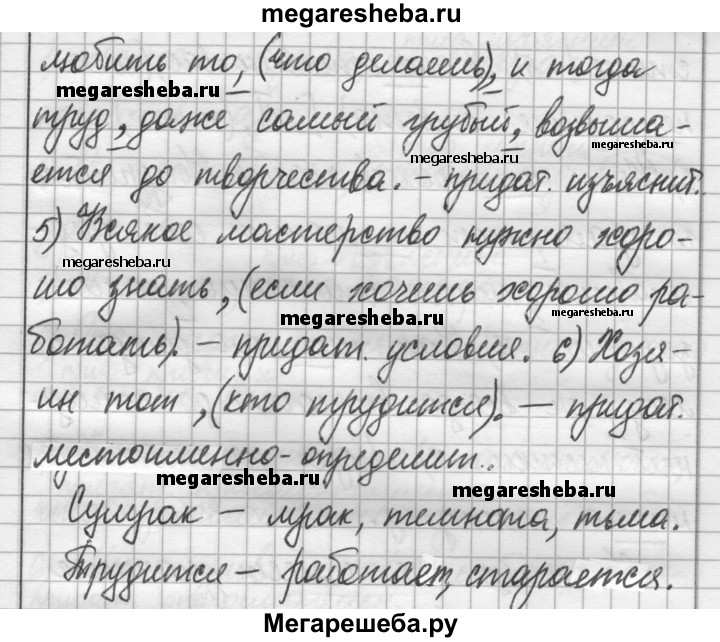 megaresheba.ru
любить то, (что делаешь), и тогда
megaresheba.ru
труд, даже самый грубый, возвыша-
megaresheba.ru
megaresheba.ru
ется до творчества. – придат. изъяснит.
5) Всякое мастерство нужно хоро-
megaresheba.ru
шо знать, (если хочешь хорошо ра-
megaresheba.ru
megaresheba.ru
ботать). – придат. условия. 6) Хозя-
ин тот, (кто трудится). – придат.
местоименно-определит..
megaresheba.ru
megaresheba.ru
Сумрак – мрак, темнота, тьма.
Трудится – работает, старается.
megaresheba.ru
megaresheba.ru
Мегарешеба.ру